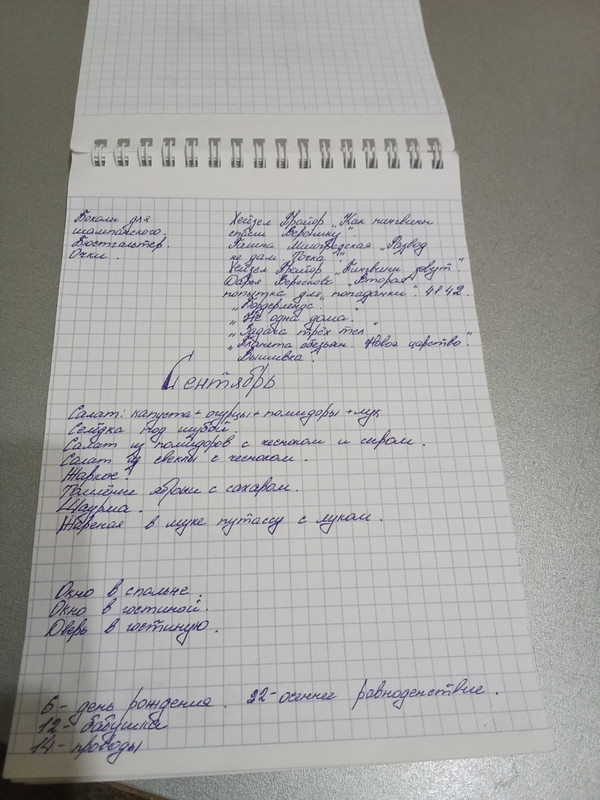 Бокалы для
шампанского.
Бюстгальтер.
Очки.
Хейзел Прайор „Как пингвины
спасли Веронику".
Галина Милоградская „Развод
не дам. Точка!"
Хейзел Прайор „Пингвины зовут"
Дарья Верескова „Вторая
попытка для попаданки". 4842.
„Бордерлендс".
„Не одна дома".
„Задача трёх тел"
„Планета обезьян. Новое царство".
Вышивка.
Сентябрь
Салат: капуста + огурцы + помидоры + лук
Селёдка под шубой.
Салат из помидоров с чесноком и сыром.
Салат из свеклы с чесноком.
Жаркое.
Томлёные яблоки с сахаром.
Шаурма.
Жареная в муке путассу с луком.
Окно в спальне.
Окно в гостиной.
Дверь в гостиную.
6 - день рождения. 22 - осеннее равноденствие.
12 - бабушка
14 - проводы